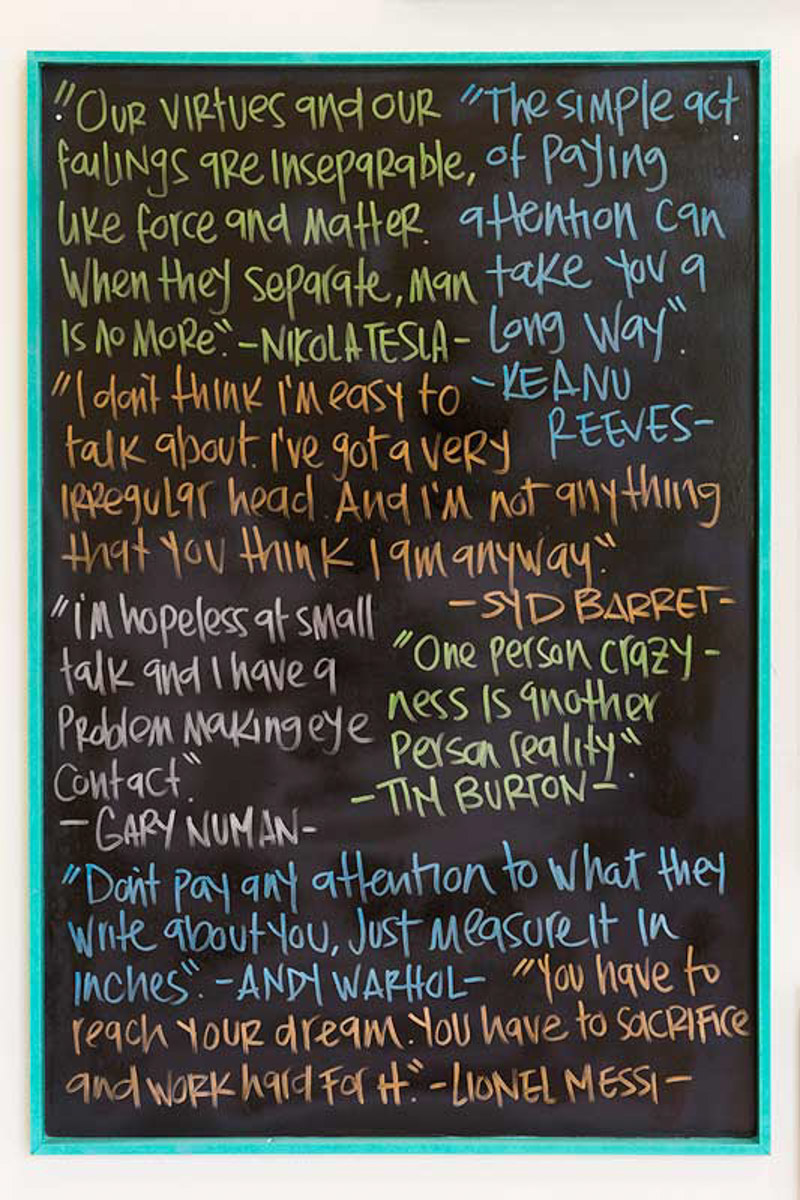 "Our virtues and our
failings are inseparable,
like force and matter.
When they separate, man
is no more". -NIKOLA TESLA-
"The simple act
of paying
attention can
take you a
long way".
-KEANU
REEVES-
"I don't think I'm easy to
talk about. I've got a very
irregular head. And I'm not anything
that you think I am anyway"
-SYD BARRET-
"i'm hopeless at small
talk and I have a
problem making eye
contact".
-GARY NUMAN-
"One person crazy-
ness is another
person reality".
-TIM BURTON-
"Don't pay any attention to what they
write about you, just measure it in
inches". -ANDY WARHOL-
"You have to
reach your dream. You have to sacrifice
and work hard for it". -LIONEL MESSI-